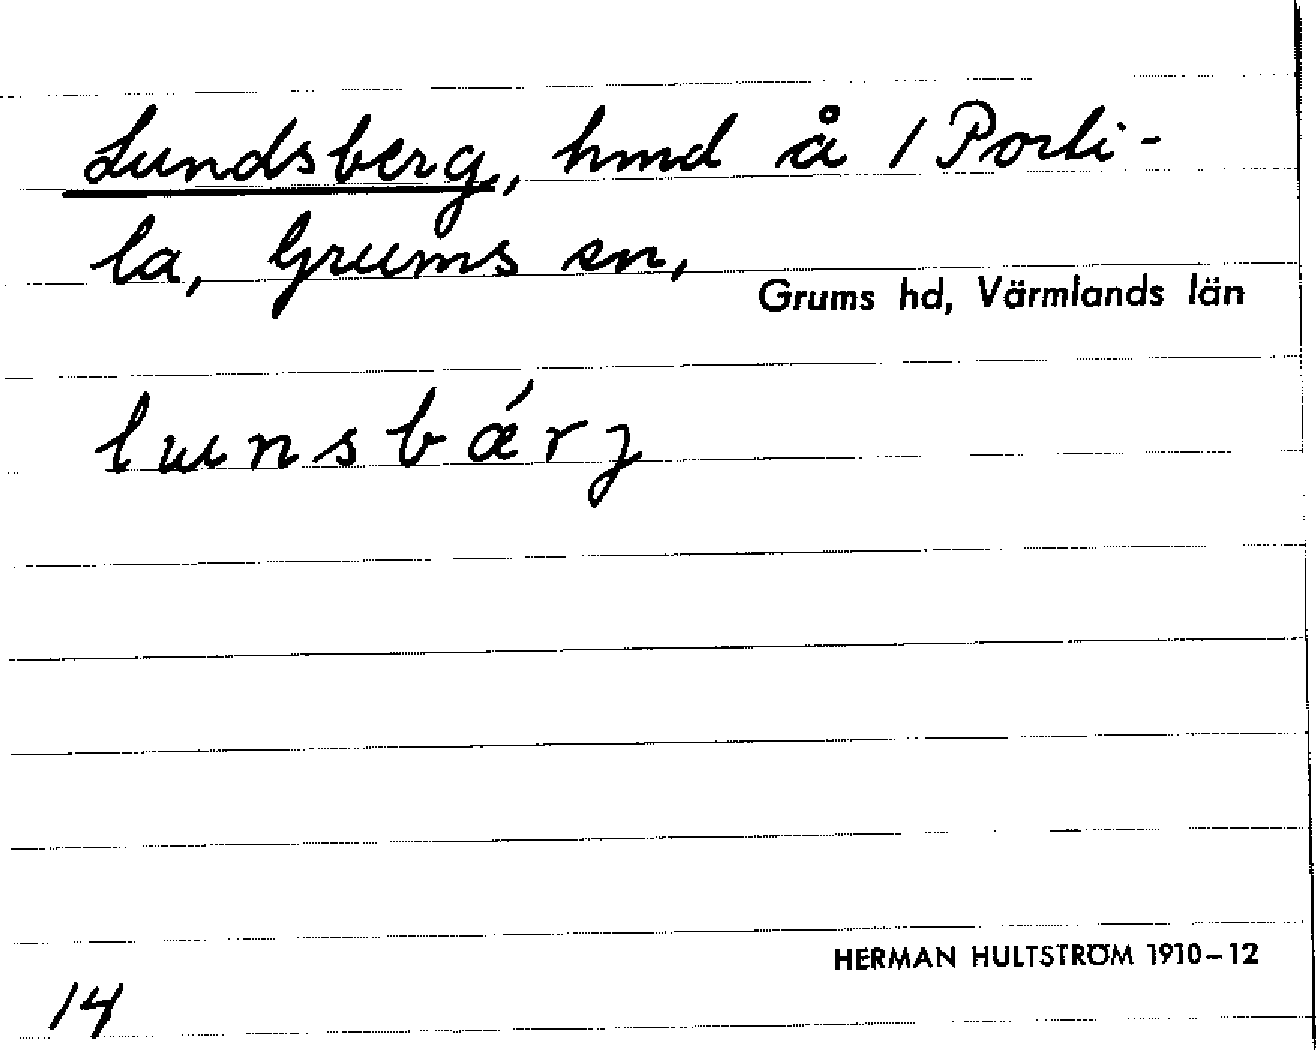 Lundsberg, hmd å 1 Porti-
la, Grums sn,
Grums hd, Värmlands län
lɯnsbǽrȷ
HERMAN HULTSTRÖM 1910–12
14